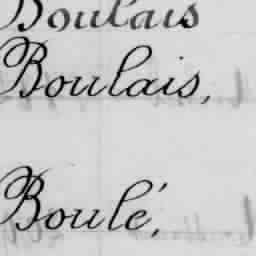 Boulais
Boulais,
Boulé,